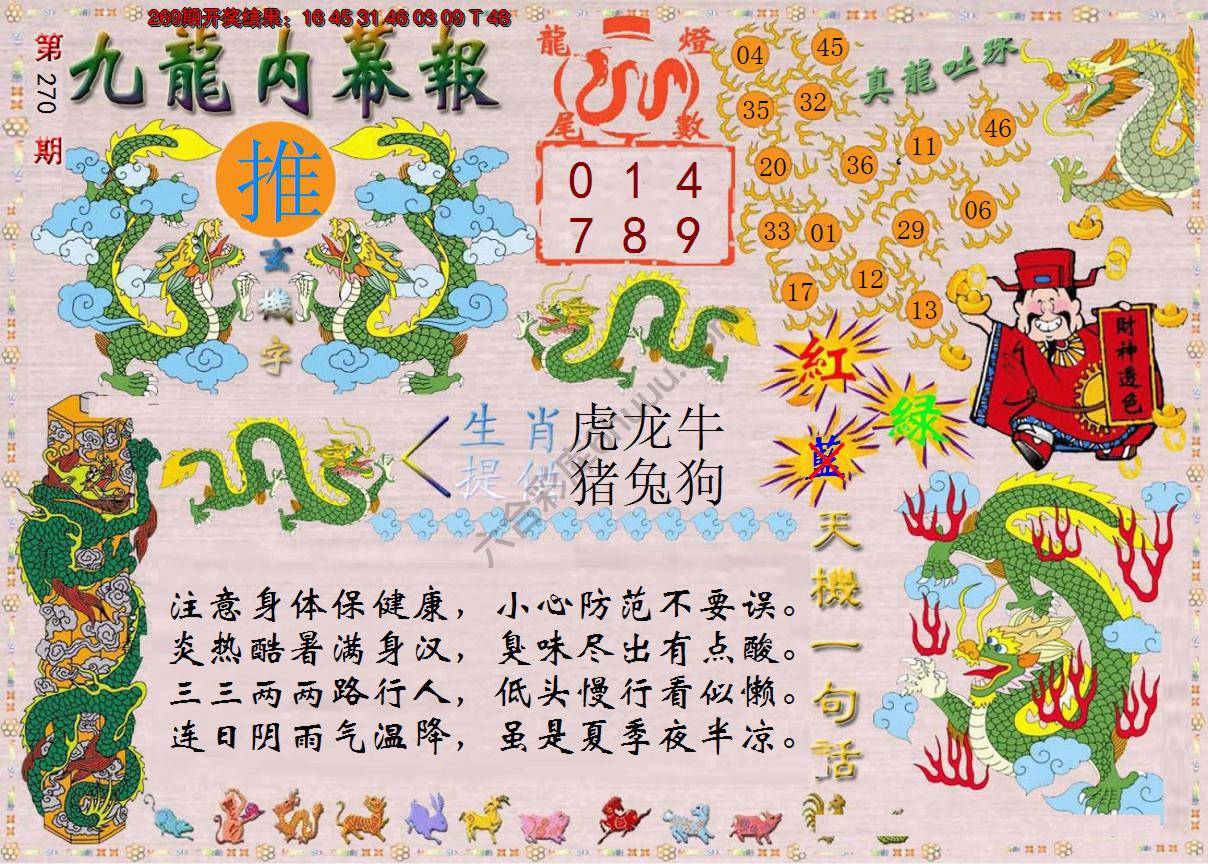 269期开奖结果：16 45 31 46 03 09 T 48
第270期
九龍内幕報
推
玄機字
龍燈
尾數
0 1 4
7 8 9
真龍吐珠
04
45
35
32
20
36
11
46
33
01
29
06
17
12
13
財神透色
紅
綠
藍
生肖
提供
虎龙牛
猪兔狗
天機一句話
注意身体保健康，小心防范不要误。
炎热酷暑满身汉，臭味尽出有点酸。
三三两两路行人，低头慢行看似懒。
连日阴雨气温降，虽是夏季夜半凉。